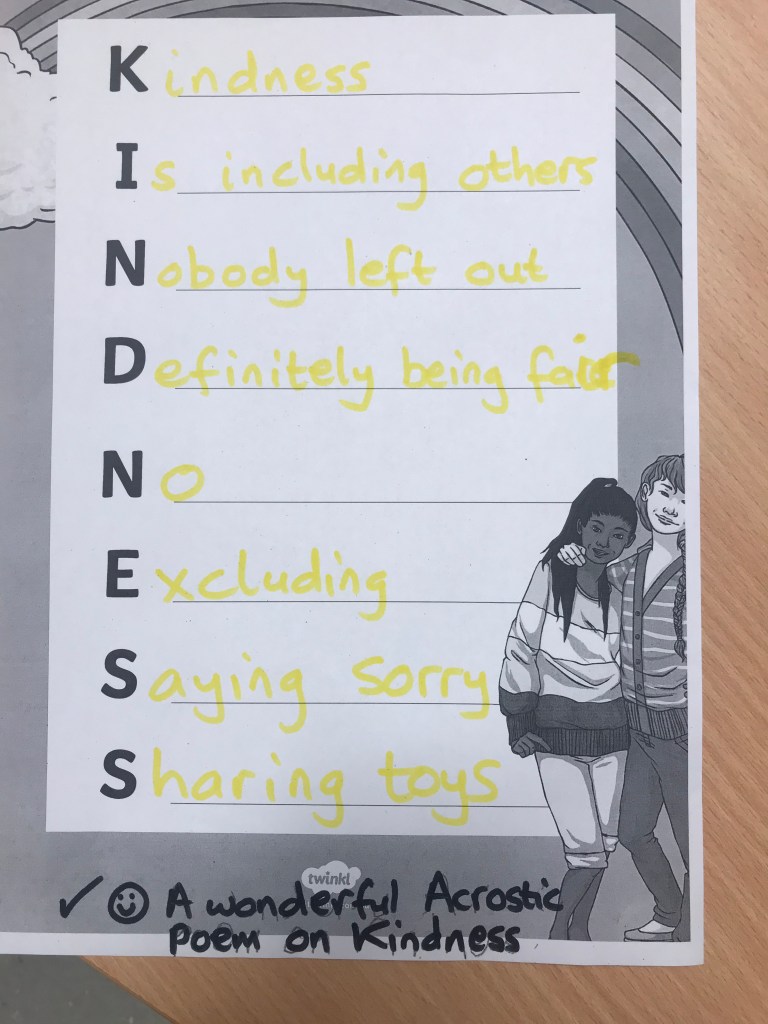 Kindness
Is including others
Nobody left out
Definitely being fair
No
Excluding
Saying sorry
Sharing toys
twinkl
✓ ☺ A wonderful Acrostic
Poem on Kindness